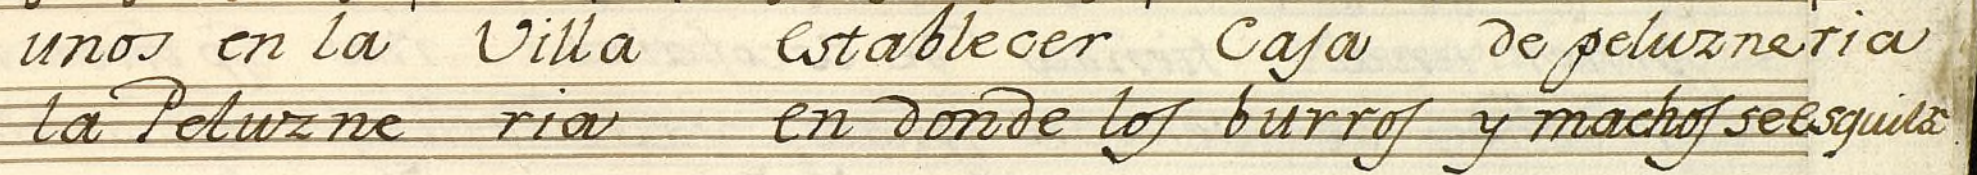 unos en la Villa establecer Casa de peluzneria
la Peluzne ria en donde los burros y machos se esquilã